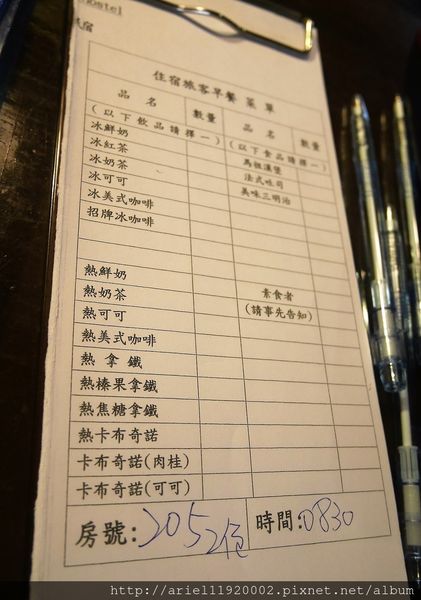 ostel
宿
住宿旅客早餐 菜 單
品 名 數量 品 名 數量
(以下飲品請擇一) (以下食品請擇一)
冰鮮奶 馬祖漢堡
冰紅茶 法式吐司
冰奶茶 美味三明治
冰可可
冰美式咖啡
招牌冰咖啡
熱鮮奶
熱奶茶 素食者
熱可可 (請事先告知)
熱美式咖啡
熱 拿 鐵
熱榛果拿鐵
熱焦糖拿鐵
熱卡布奇諾
卡布奇諾(肉桂)
卡布奇諾(可可)
房號:205 2位 時間:0830
http://ariel11920002.pixnet.net/album